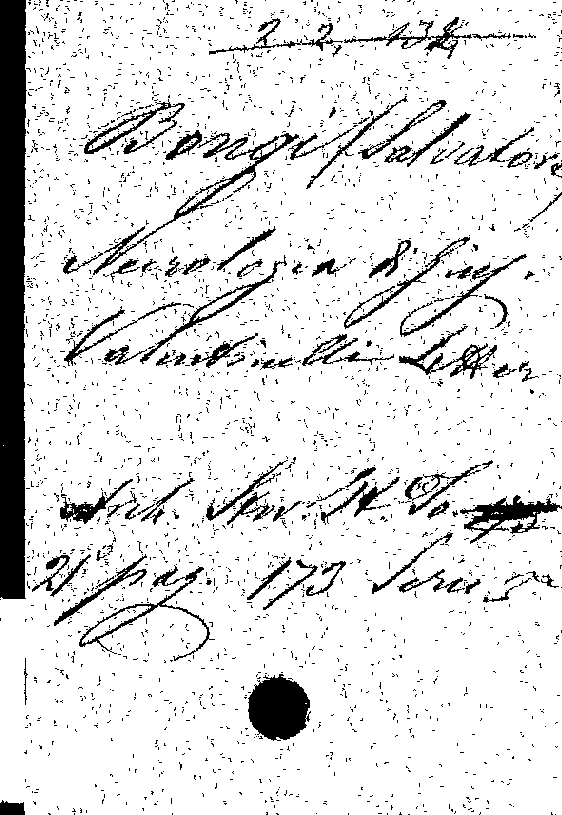 2. 2. 132
Bongi (Salvatore
Necrologia di Gius.
Valentinelli Letter.
Arch. Stor. It. To.
21° pag. 173 Serie 3ª